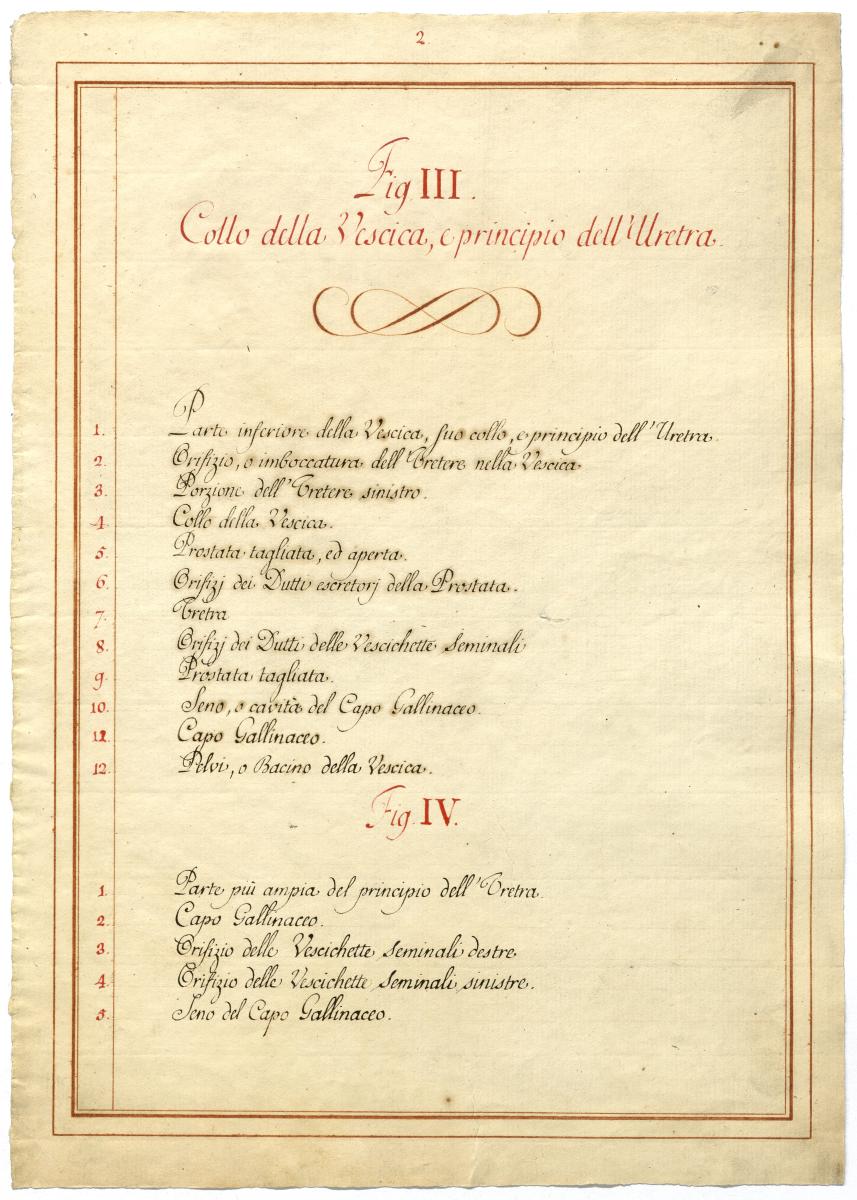 2.
Fig. III.
Collo della Vescica, e principio dell'Uretra.
1. Parte inferiore della Vescica, suo collo, e principio dell'Uretra.
2. Orifizio, o imboccatura dell'Uretere nella Vescica
3. Porzione dell'Uretere sinistro.
4. Collo della Vescica.
5. Prostata tagliata, ed aperta.
6. Orifizj dei Dutti escretorj della Prostata.
7. Uretra
8. Orifizj dei Dutti delle Vescichette seminali
9. Prostata tagliata.
10. Seno, o cavità del Capo Gallinaceo.
12. Capo Gallinaceo.
12. Pelvi, o Bacino della Vescica.
Fig. IV.
1. Parte più ampia del principio dell'Uretra.
2. Capo Gallinaceo.
3. Orifizio delle Vescichette seminali destre
4. Orifizio delle Vescichette seminali sinistre.
5. Seno del Capo Gallinaceo.